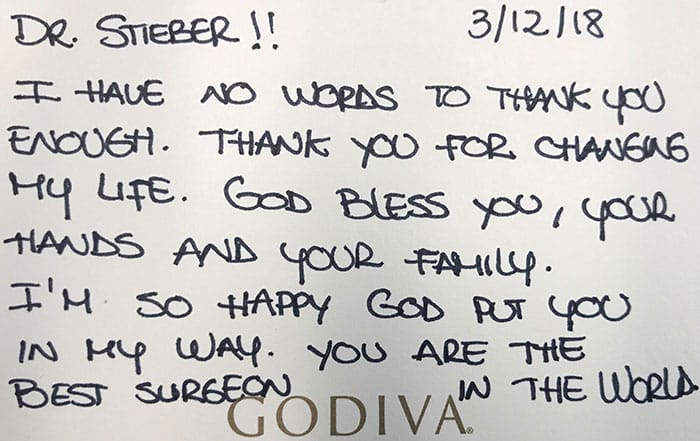 DR. STIEBER!! 3/12/18
I HAVE NO WORDS TO THANK YOU
ENOUGH. THANK YOU FOR CHANGING
MY LIFE. GOD BLESS YOU, YOUR
HANDS AND YOUR FAMILY.
I'M SO HAPPY GOD PUT YOU
IN MY WAY. YOU ARE THE
BEST SURGEON IN THE WORLD
GODIVA®